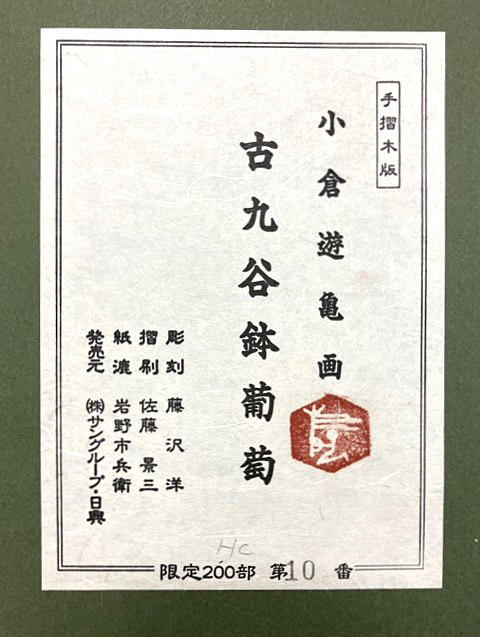 手摺木版
小倉遊亀画
古九谷鉢葡萄
彫刻 藤沢洋
摺刷 佐藤景三
紙漉 岩野市兵衛
発売元 ㈱サングループ・日興
HC
限定200部 第10番